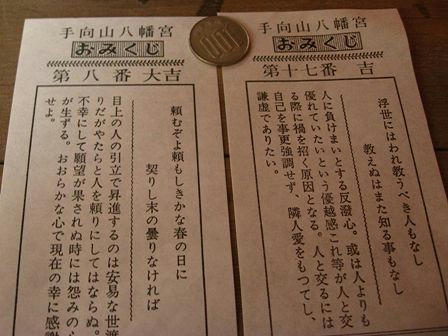 手向山八幡宮
おみくじ
第十七番 吉
浮世にはわれ教うべき人もなし
教えぬはまた知る事もなし
人に負けまいとする反潑心。或は人よりも
優れていたいという優越感これ等が人と交
る際に禍を招く原因となる。人と交るには
自己を事更強調せず、隣人愛をもつてし、
謙虚でありたい。
手向山八幡宮
おみくじ
第八番 大吉
頼むぞよ頼もしきかな春の日に
契りし末の曇りなければ
目上の人の引立で昇進するのは安易な世渡
りだがやたらと人を頼りにしてはならぬ。
不幸にして願望が果されぬ時には怨みの心
が生ずる。おおらかな心で現在の幸に感謝
せよ。
100